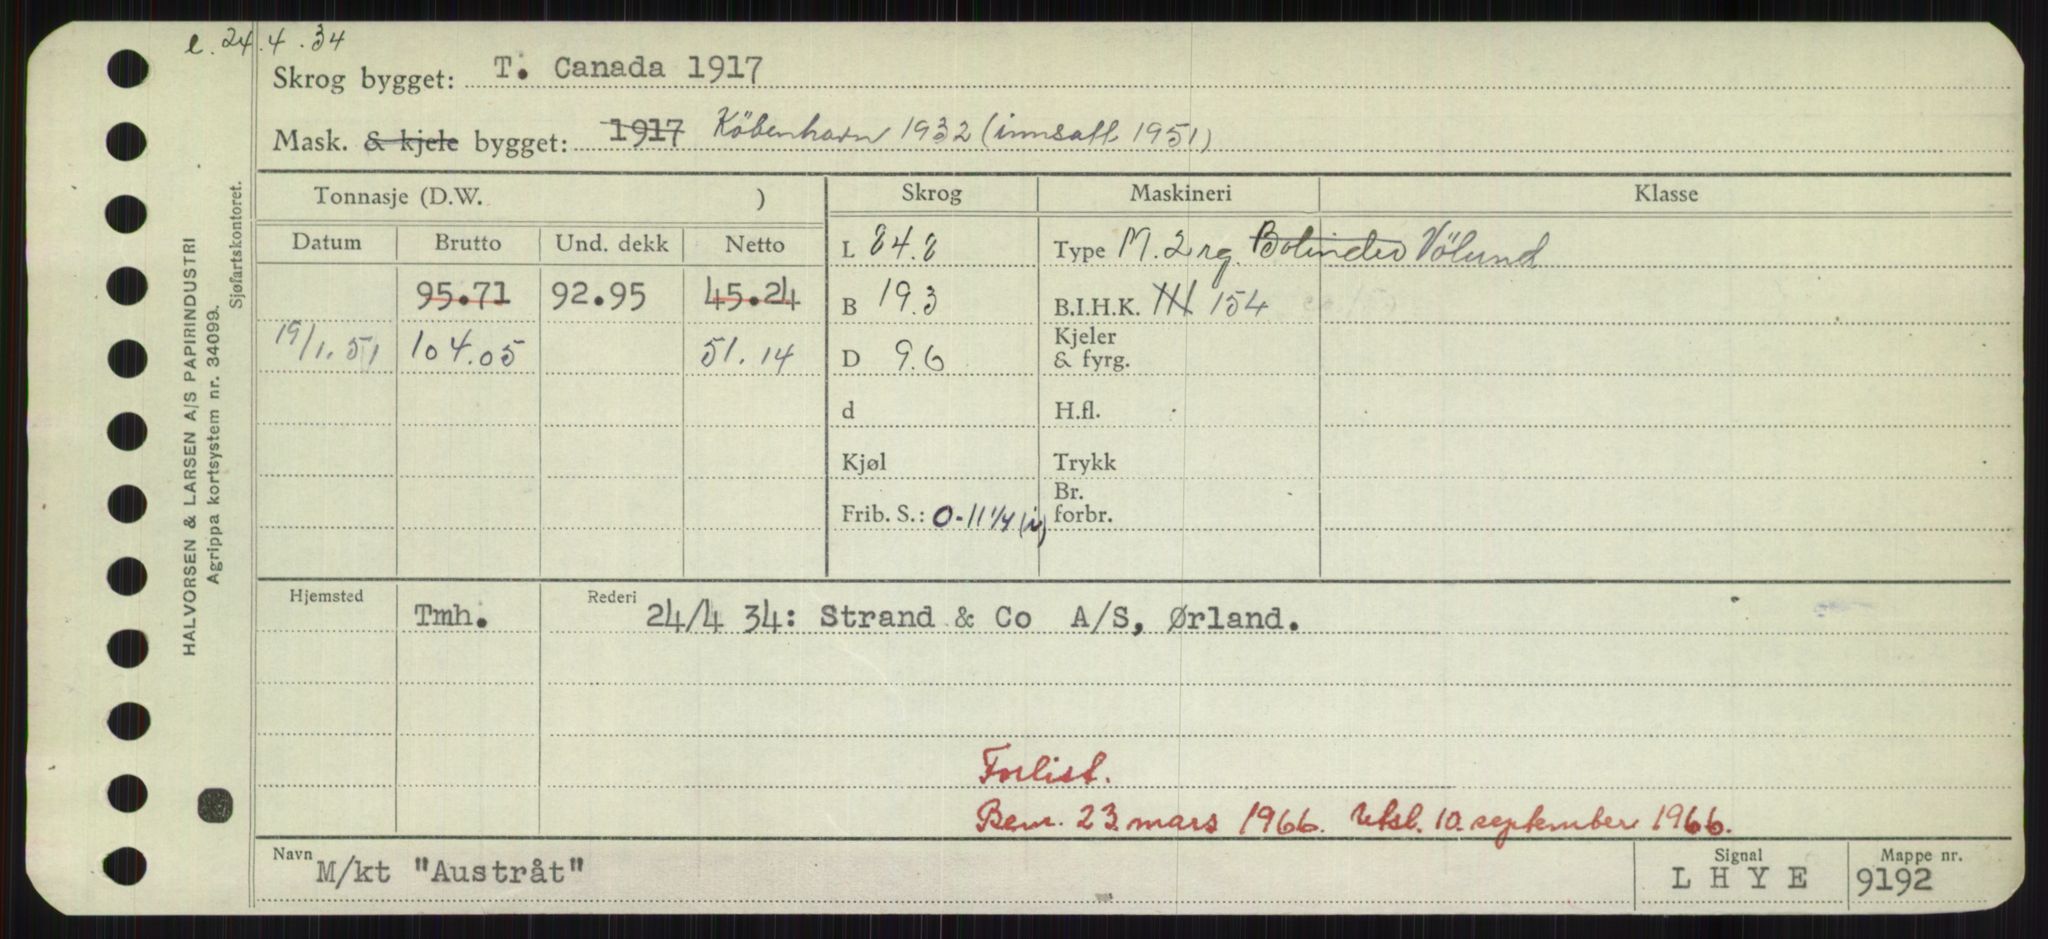 e. 24.4.34
Skrog bygget: T. Canada 1917
Mask. & kjele bygget: 1917 København 1932 (innsatt 1951)
Tonnasje (D.W. )
Skrog
Maskineri
Klasse
Datum Brutto Und. dekk Netto
L 84.8
Type M. 2 rg. Bolinder Vølund
95.71 92.95 45.24
B 19.3
B.I.H.K. 154
19/1.51 104.05 51.14
D 9.6
Kjeler
& fyrg.
d
H.fl.
Kjøl
Trykk
Frib. S.: 0-11 1/4 (v)
Br.
forbr.
Hjemsted Tmh. Rederi 24/4 34: Strand & Co A/S, Ørland.
Forlist.
Bem. 23 mars 1966. Utsl. 10. september 1966.
Navn M/kt "Austråt"
Signal L H Y E
Mappe nr. 9192
HALVORSEN & LARSEN A/S PAPIRINDUSTRI
Agrippa kortsystem nr. 34099.
Sjøfartskontoret.